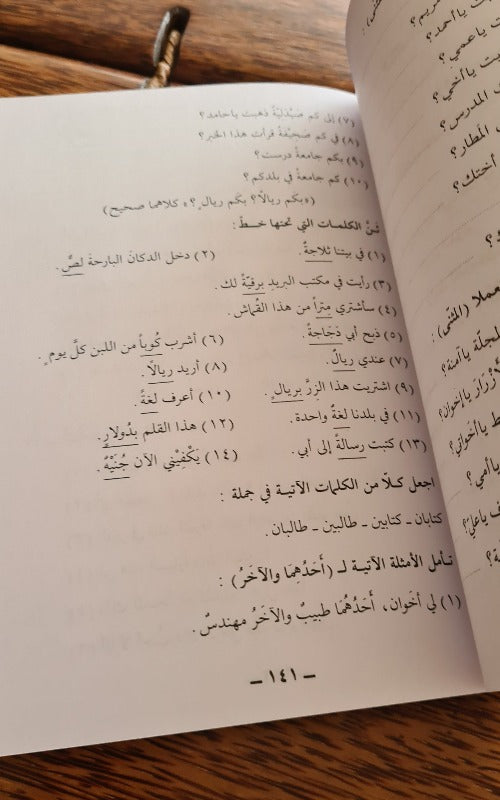 (٧) إلى كم صَيْدَلِيَّةً ذهبت ياحامد؟
(٨) في كم صَحِيْفَةً قرأت هذا الخبر؟
(٩) بكم جامعةً درست؟
(١٠) كم جامعةً في بلدكم؟
(«بكم ريالاً؟ بكم ريالٍ؟» كلاهما صحيح)
ثَنِّ الكلمات التي تحتها خطّ :
(١) في بيتنا ثلاجةٌ. (٢) دخل الدكانَ البارحةَ لصٌّ.
(٣) رأيت في مكتب البريدِ برقيّةً لك.
(٤) سأشتري متراً من هذا القُماش.
(٥) ذبح أبي دَجَاجةً. (٦) أشرب كُوباً من اللبن كلَّ يوم.
(٧) عندي ريالٌ. (٨) أريد ريالاً.
(٩) اشتريت هذا الزِرَّ بريالٍ. (١٠) أعرف لغةً.
(١١) في بلدنا لغةٌ واحدة. (١٢) هذا القلم بدُولارٍ.
(١٣) كتبت رسالةً إلى أبي. (١٤) يَكْفِيْنِي الآن جُنَيْهٌ.
اجعل كلّا من الكلمات الآتية في جملة :
كتابان ـ كتابين ـ طالبين ـ طالبان.
تأمل الأمثلة الآتية لـ (أَحَدُهِمَا والآخَرُ) :
(١) لي أخَوان، أَحَدُهُمَا طبيبٌ والآخَرُ مهندسٌ.
ـ ١٤١ ـ
مريم؟
ت ياأحمد؟
ياعمي؟
ت ياأخي؟
المدرس؟
المطار؟
أختك؟
(المثنّى) :
ياآمنة؟
ياإخوان؟
ياأمي؟
ياعليّ؟